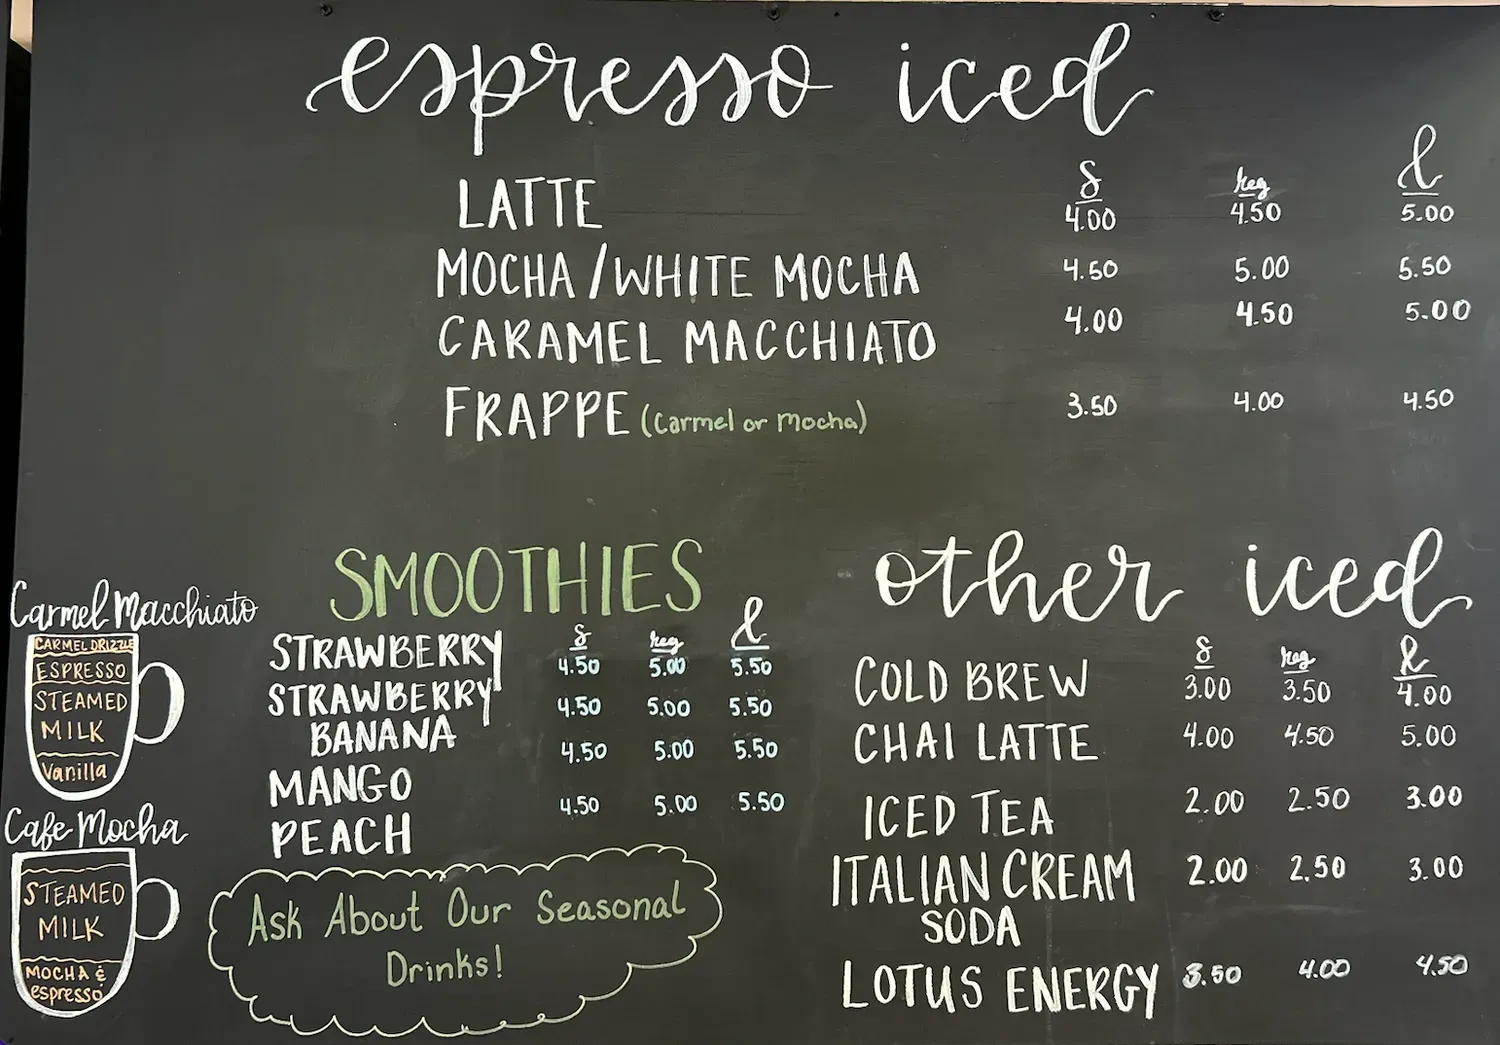 espresso iced
s reg l
LATTE 4.00 4.50 5.00
MOCHA/WHITE MOCHA 4.50 5.00 5.50
CARAMEL MACCHIATO 4.00 4.50 5.00
FRAPPE (Carmel or Mocha) 3.50 4.00 4.50
Carmel Macchiato
CARMEL DRIZZLE
ESPRESSO
STEAMED
MILK
Vanilla
Cafe Mocha
STEAMED
MILK
MOCHA &
espresso
SMOOTHIES
s reg l
STRAWBERRY 4.50 5.00 5.50
STRAWBERRY 4.50 5.00 5.50
BANANA
MANGO 4.50 5.00 5.50
PEACH 4.50 5.00 5.50
Ask About Our Seasonal
Drinks!
other iced
s reg l
COLD BREW 3.00 3.50 4.00
CHAI LATTE 4.00 4.50 5.00
ICED TEA 2.00 2.50 3.00
ITALIAN CREAM 2.00 2.50 3.00
SODA
LOTUS ENERGY 3.50 4.00 4.50